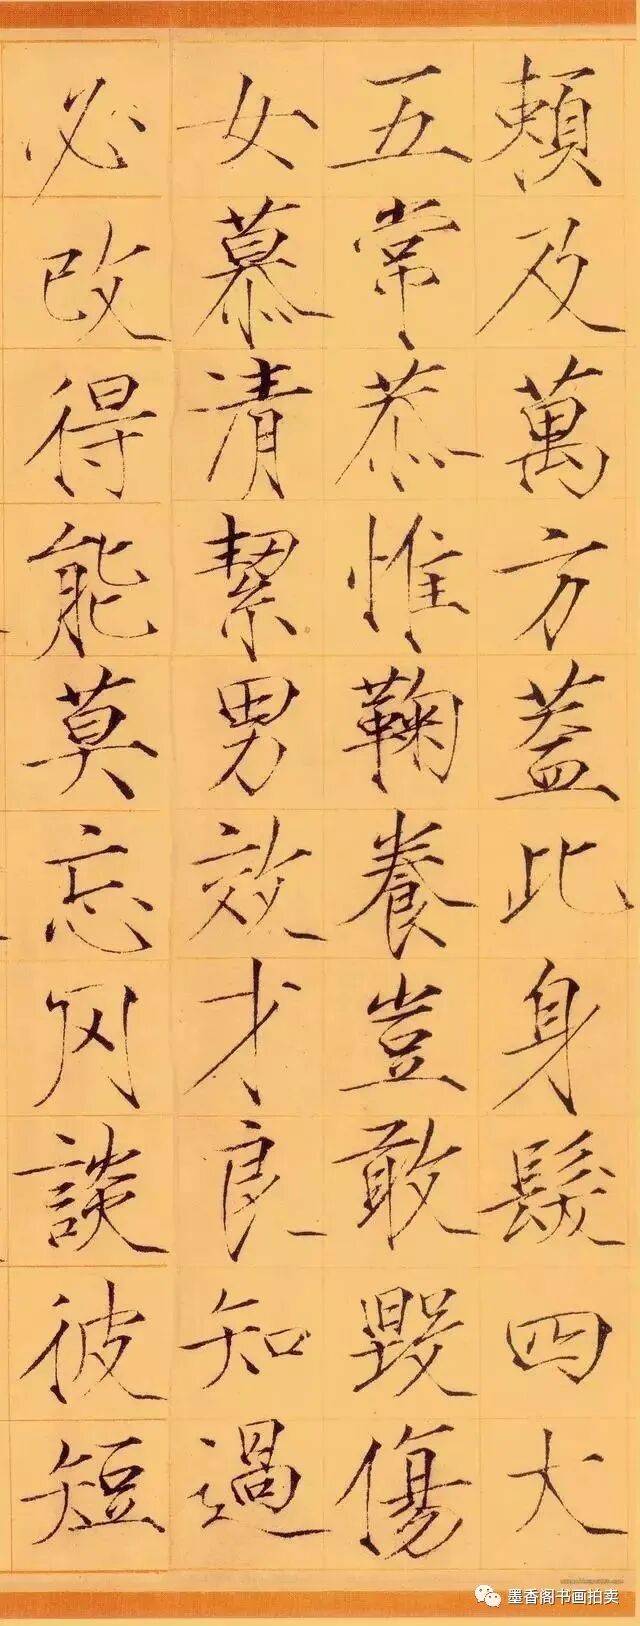 頼及萬方蓋此身髮四大
五常恭惟鞠養豈敢毀傷
女慕清絜男效才良知過
必改得能莫忘罔談彼短
墨香阁书画拍卖